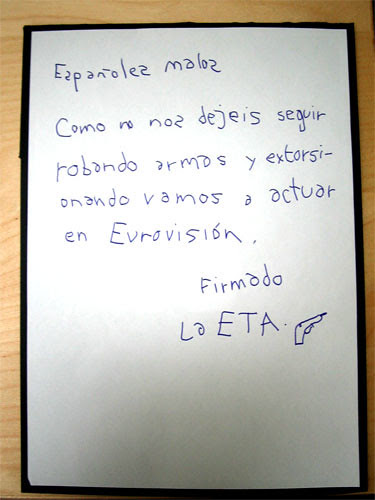 Españolez maloz
Como no noz dejeis seguir
robando armas y extorsi-
onando vamos a actuar
en Eurovisión.
Firmado
La ETA.